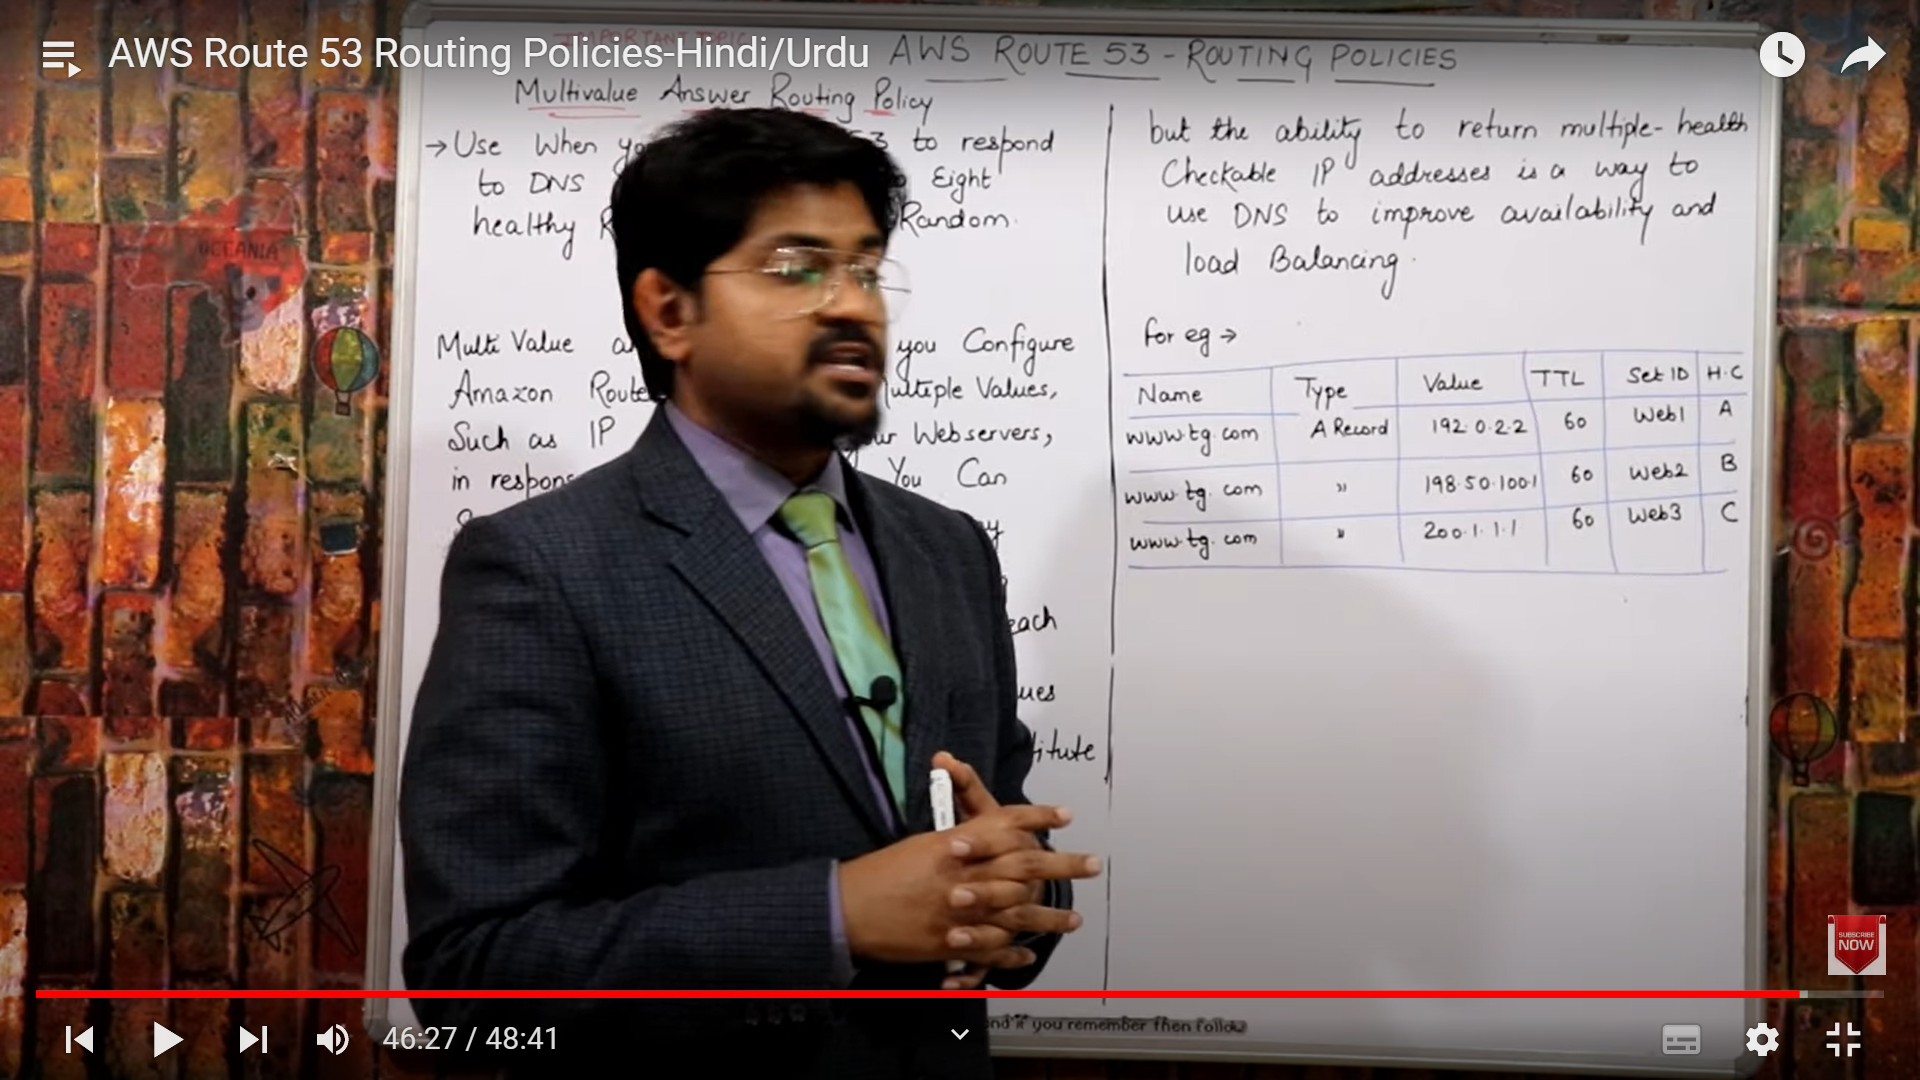 AWS Route 53 Routing Policies-Hindi/Urdu
IMPORTANT TOPIC
AWS ROUTE 53 - ROUTING POLICIES
Multivalue Answer Routing Policy
→ Use When 53 to respond
to DNS Eight
healthy Random.
Multi Value you Configure
Amazon Route Multiple Values,
Such as IP Webservers,
in You Can
each
but the ability to return multiple- health
Checkable IP addresses is a way to
use DNS to improve availability and
load Balancing.
for eg →
Name Type Value TTL Set ID H.C
www.tg.com A Record 192.0.2.2 60 Web1 A
www.tg.com " 198.50.100.1 60 Web2 B
www.tg.com " 200.1.1.1 60 Web3 C
OCEANIA
SUBSCRIBE
NOW
you remember then follow
46:27 / 48:41